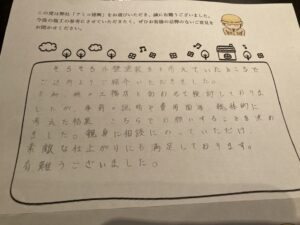 この度は弊社「アミュ建興」をお選びいただき、誠に有難うございました。
今後の施工の参考にさせていただきますので、ぜひお客様の忌憚のないご意見を
お聞かせください!
そろそろ外壁塗装をと考えていたところで
ご近所様に紹介いただきました。
その他の工務店と合わせて検討しておりま
したが、事前の説明や費用面等、総体的に
考えた結果、こちらでお願いすることを決め
ました。親身に相談にのっていただけ、
素敵な仕上がりにも満足しております。
有難うございました。